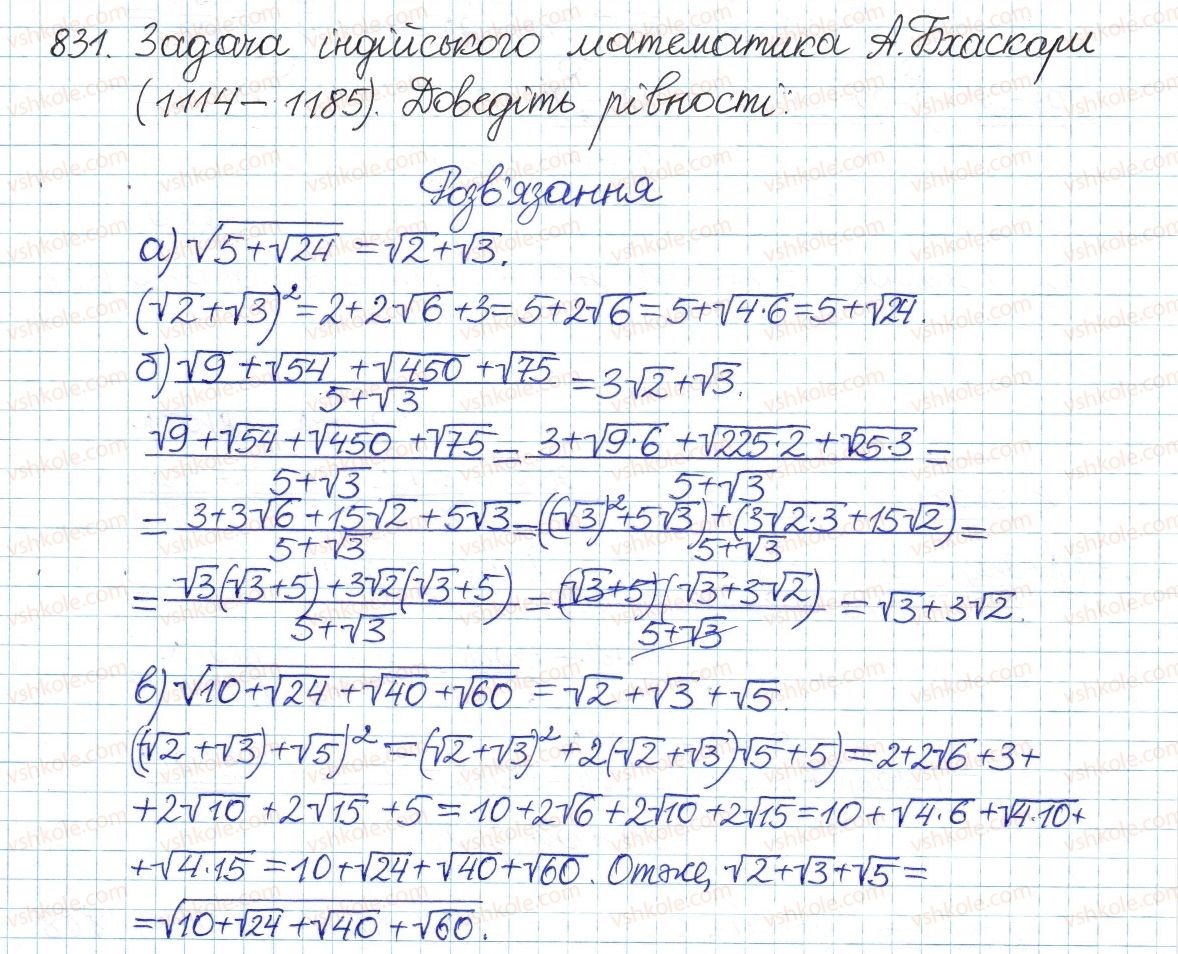 831. Задача індійського математика А. Бхаскари
(1114 – 1185). Доведіть рівності:
Розв'язання
а) √(5+√24) = √2+√3.
(√2+√3)² = 2+2√6+3 = 5+2√6 = 5+√(4·6) = 5+√24.
б) (√9+√54+√450+√75)/(5+√3) = 3√2+√3.
(√9+√54+√450+√75)/(5+√3) = (3+√(9·6)+√(225·2)+√(25·3))/(5+√3) =
= (3+3√6+15√2+5√3)/(5+√3) = (((√3)²+5√3)+(3√(2·3)+15√2))/(5+√3) =
= (√3(√3+5)+3√2(√3+5))/(5+√3) = ((√3+5)(√3+3√2))/(5+√3) = √3+3√2.
в) √(10+√24+√40+√60) = √2+√3+√5.
((√2+√3)+√5)² = (√2+√3)²+2(√2+√3)√5+5) = 2+2√6+3+
+2√10+2√15+5 = 10+2√6+2√10+2√15 = 10+√(4·6)+√(4·10)+
+√(4·15) = 10+√24+√40+√60. Отже, √2+√3+√5 =
= √(10+√24+√40+√60).